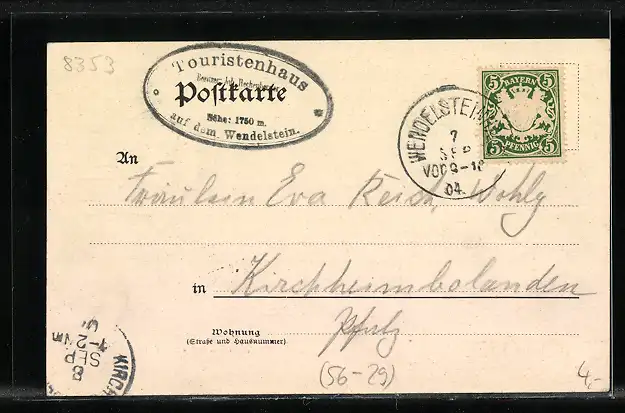 8353
Touristenhaus
Postkarte
Höhe: 1750 m.
auf dem Wendelstein.
BAYERN
5 5
5 5
PFENNIG
WENDELSTEIN
7
SEP
VOR 9-10
04.
An
Fräulein Eva Reich, Wohlg
in Kirchheimbolanden
Wohnung
(Straße und Hausnummer)
Pfalz
(56-29)
4,-
KIRCH
8
SEP
1-2 Nm